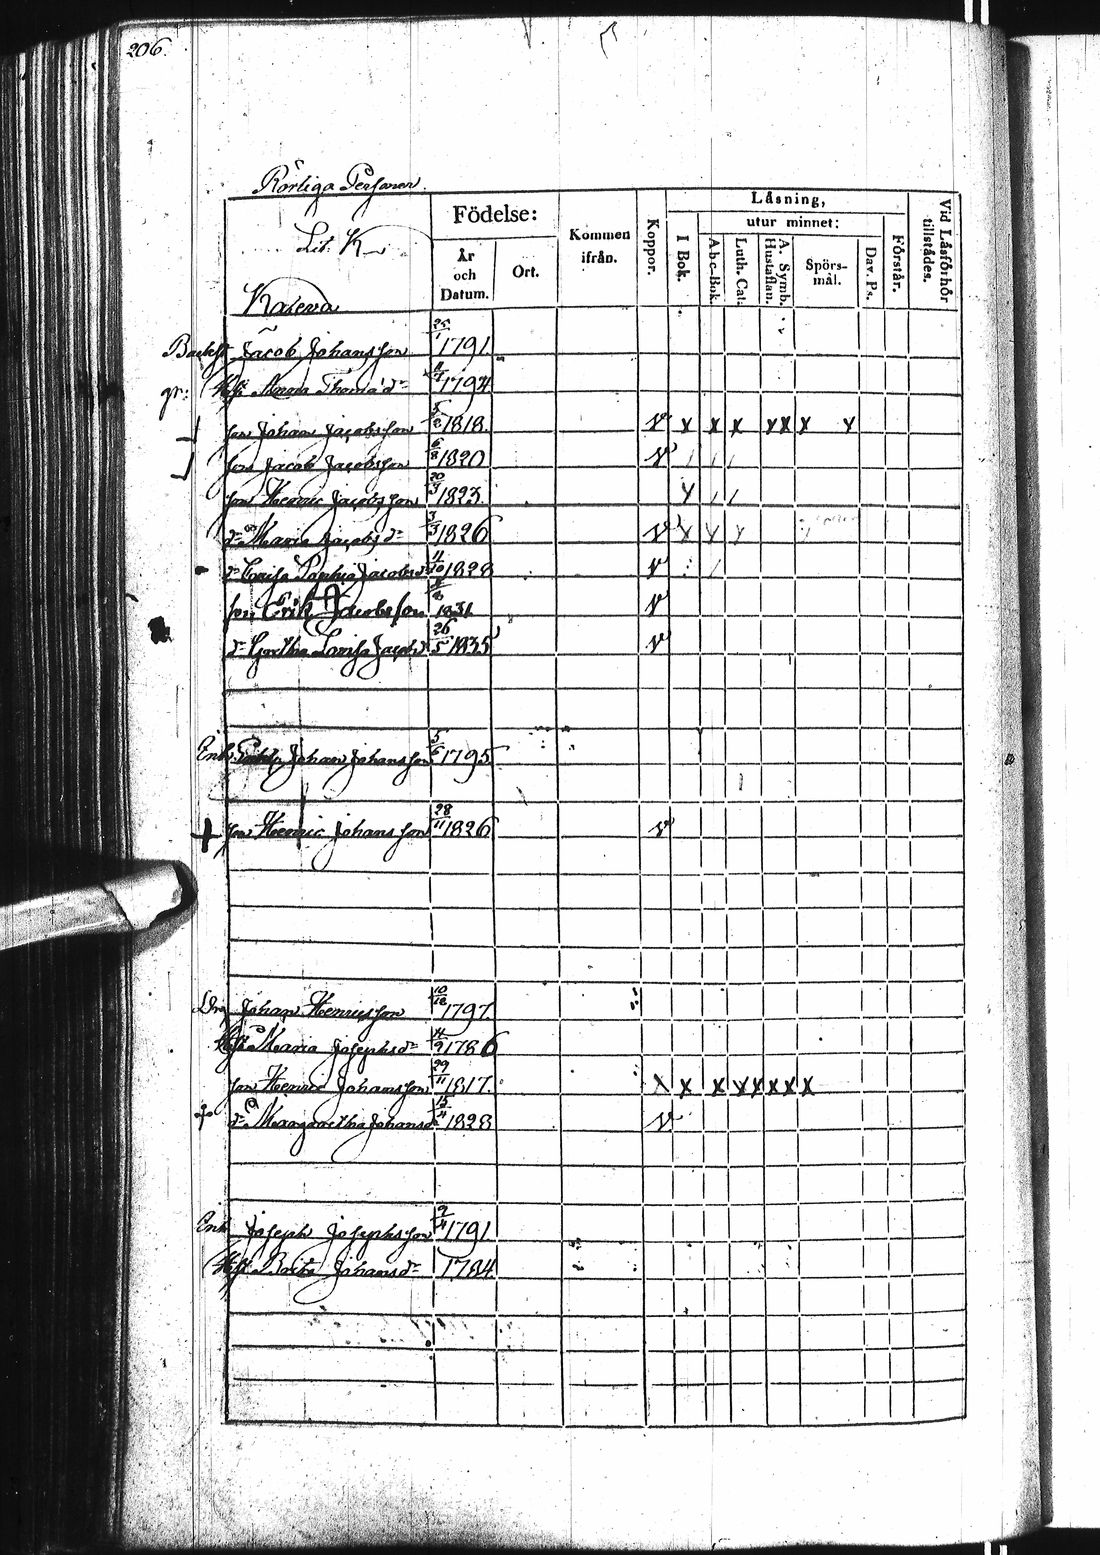 206.
Rörliga Personer.
Litt. K
Kaleva
Födelse:
År och Datum.
Ort.
Kommen ifrån.
Koppor.
Läsning,
I Bok.
utur minnet:
Abc-Bok.
Luth. Cat.
A. Symb. Hustaflan.
Spörs-mål.
Dav. Ps.
Förstår.
Vid Läsförhör tillstädes.
Jacob Johansson 1791.
Hst Anna Thomæd:r 1794
son Johan Jacobsson 1818. v x x x x x x x
son Jacob Jacobsson 6/8 1820 v
son Henric Jacobsson 20/3 1823.
d:r Maria Jacobsd:r 3/3 1826 v
d:r Caisa Sophia Jacobsd:r 11/10 1828 v
son Erik Jacobsson 1831 v
d:r Gretha Lovisa Jacobsd 26/5 1835 v
Enkl. Johan Johansson 5/6 1795
son Henric Johansson 28/11 1826 v
Johan Henricsson 10/12 1797.
Hst Maria Josephsd:r 1786
son Henric Johansson 29/11 1817. x x x x x x x x
d:r Margaretha Johansd 15/4 1828 v
Joseph Josephsson 1791
Hst Brita Johansd:r 1784